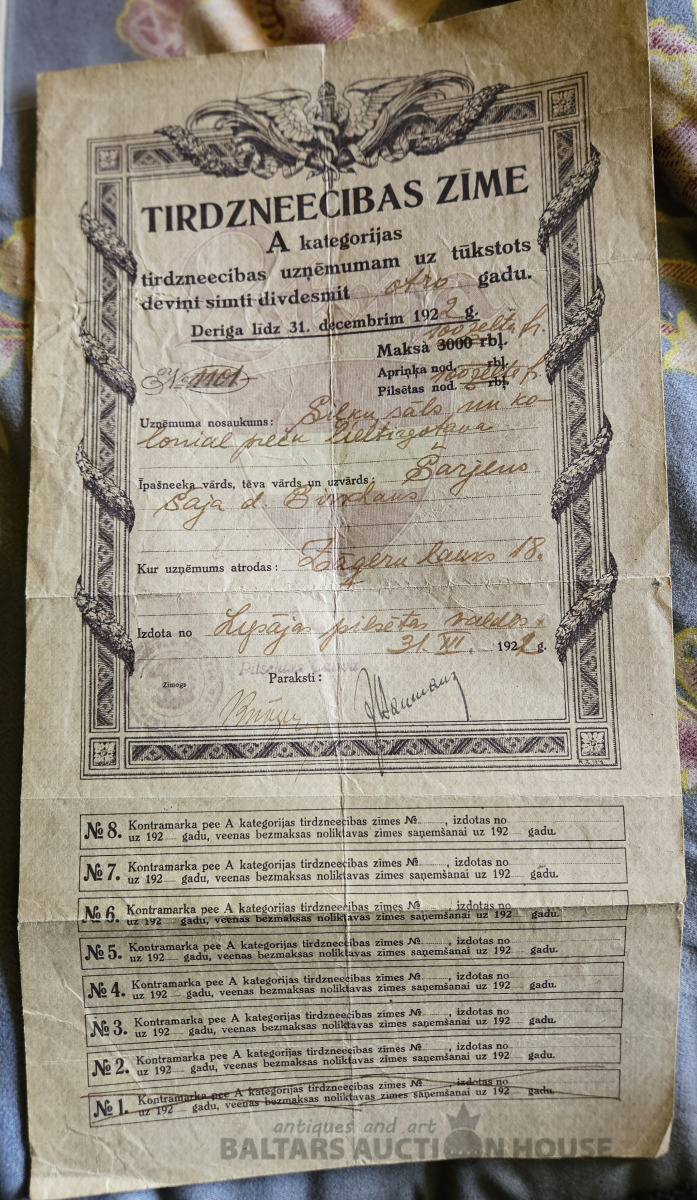 TIRDZNEECIBAS ZĪME
A kategorijas
tirdzneecibas uzņēmumam uz tūkstots
deviņi simti divdesmit otro gadu.
Deriga līdz 31. decembrim 1922 g.
100 zelta fr.
Maksā 3000 rbļ.
Apriņķa nod. rbļ.
Pilsētas nod. rbļ.
№ 1101
Uzņēmuma nosaukums: Silķu, sāls un ko-
lonial preču lieltirgotava
Īpašneeka vārds, tēva vārds un uzvārds:
Kur uzņēmums atrodas: 18.
Izdota no pilsētas valdes.
31. XII. 1922 g.
Zimogs
Paraksti:
№ 8. Kontramarka pee A kategorijas tirdzneecibas zīmes № , izdotas no
uz 192 gadu, veenas bezmaksas noliktavas zīmes saņemšanai uz 192 gadu.
№ 7. Kontramarka pee A kategorijas tirdzneecibas zīmes № , izdotas no
uz 192 gadu, veenas bezmaksas noliktavas zīmes saņemšanai uz 192 gadu.
№ 6. Kontramarka pee A kategorijas tirdzneecibas zīmes № , izdotas no
uz 192 gadu, veenas bezmaksas noliktavas zīmes saņemšanai uz 192 gadu.
№ 5. Kontramarka pee A kategorijas tirdzneecibas zīmes № , izdotas no
uz 192 gadu, veenas bezmaksas noliktavas zīmes saņemšanai uz 192 gadu.
№ 4. Kontramarka pee A kategorijas tirdzneecibas zīmes № , izdotas no
uz 192 gadu, veenas bezmaksas noliktavas zīmes saņemšanai uz 192 gadu.
№ 3. Kontramarka pee A kategorijas tirdzneecibas zīmes № , izdotas no
uz 192 gadu, veenas bezmaksas noliktavas zīmes saņemšanai uz 192 gadu.
№ 2. Kontramarka pee A kategorijas tirdzneecibas zīmes № , izdotas no
uz 192 gadu, veenas bezmaksas noliktavas zīmes saņemšanai uz 192 gadu.
№ 1. Kontramarka pee A kategorijas tirdzneecibas zīmes № , izdotas no
uz 192 gadu, veenas bezmaksas noliktavas zīmes saņemšanai uz 192 gadu.
antiques and art
BALTARS AUCTION HOUSE